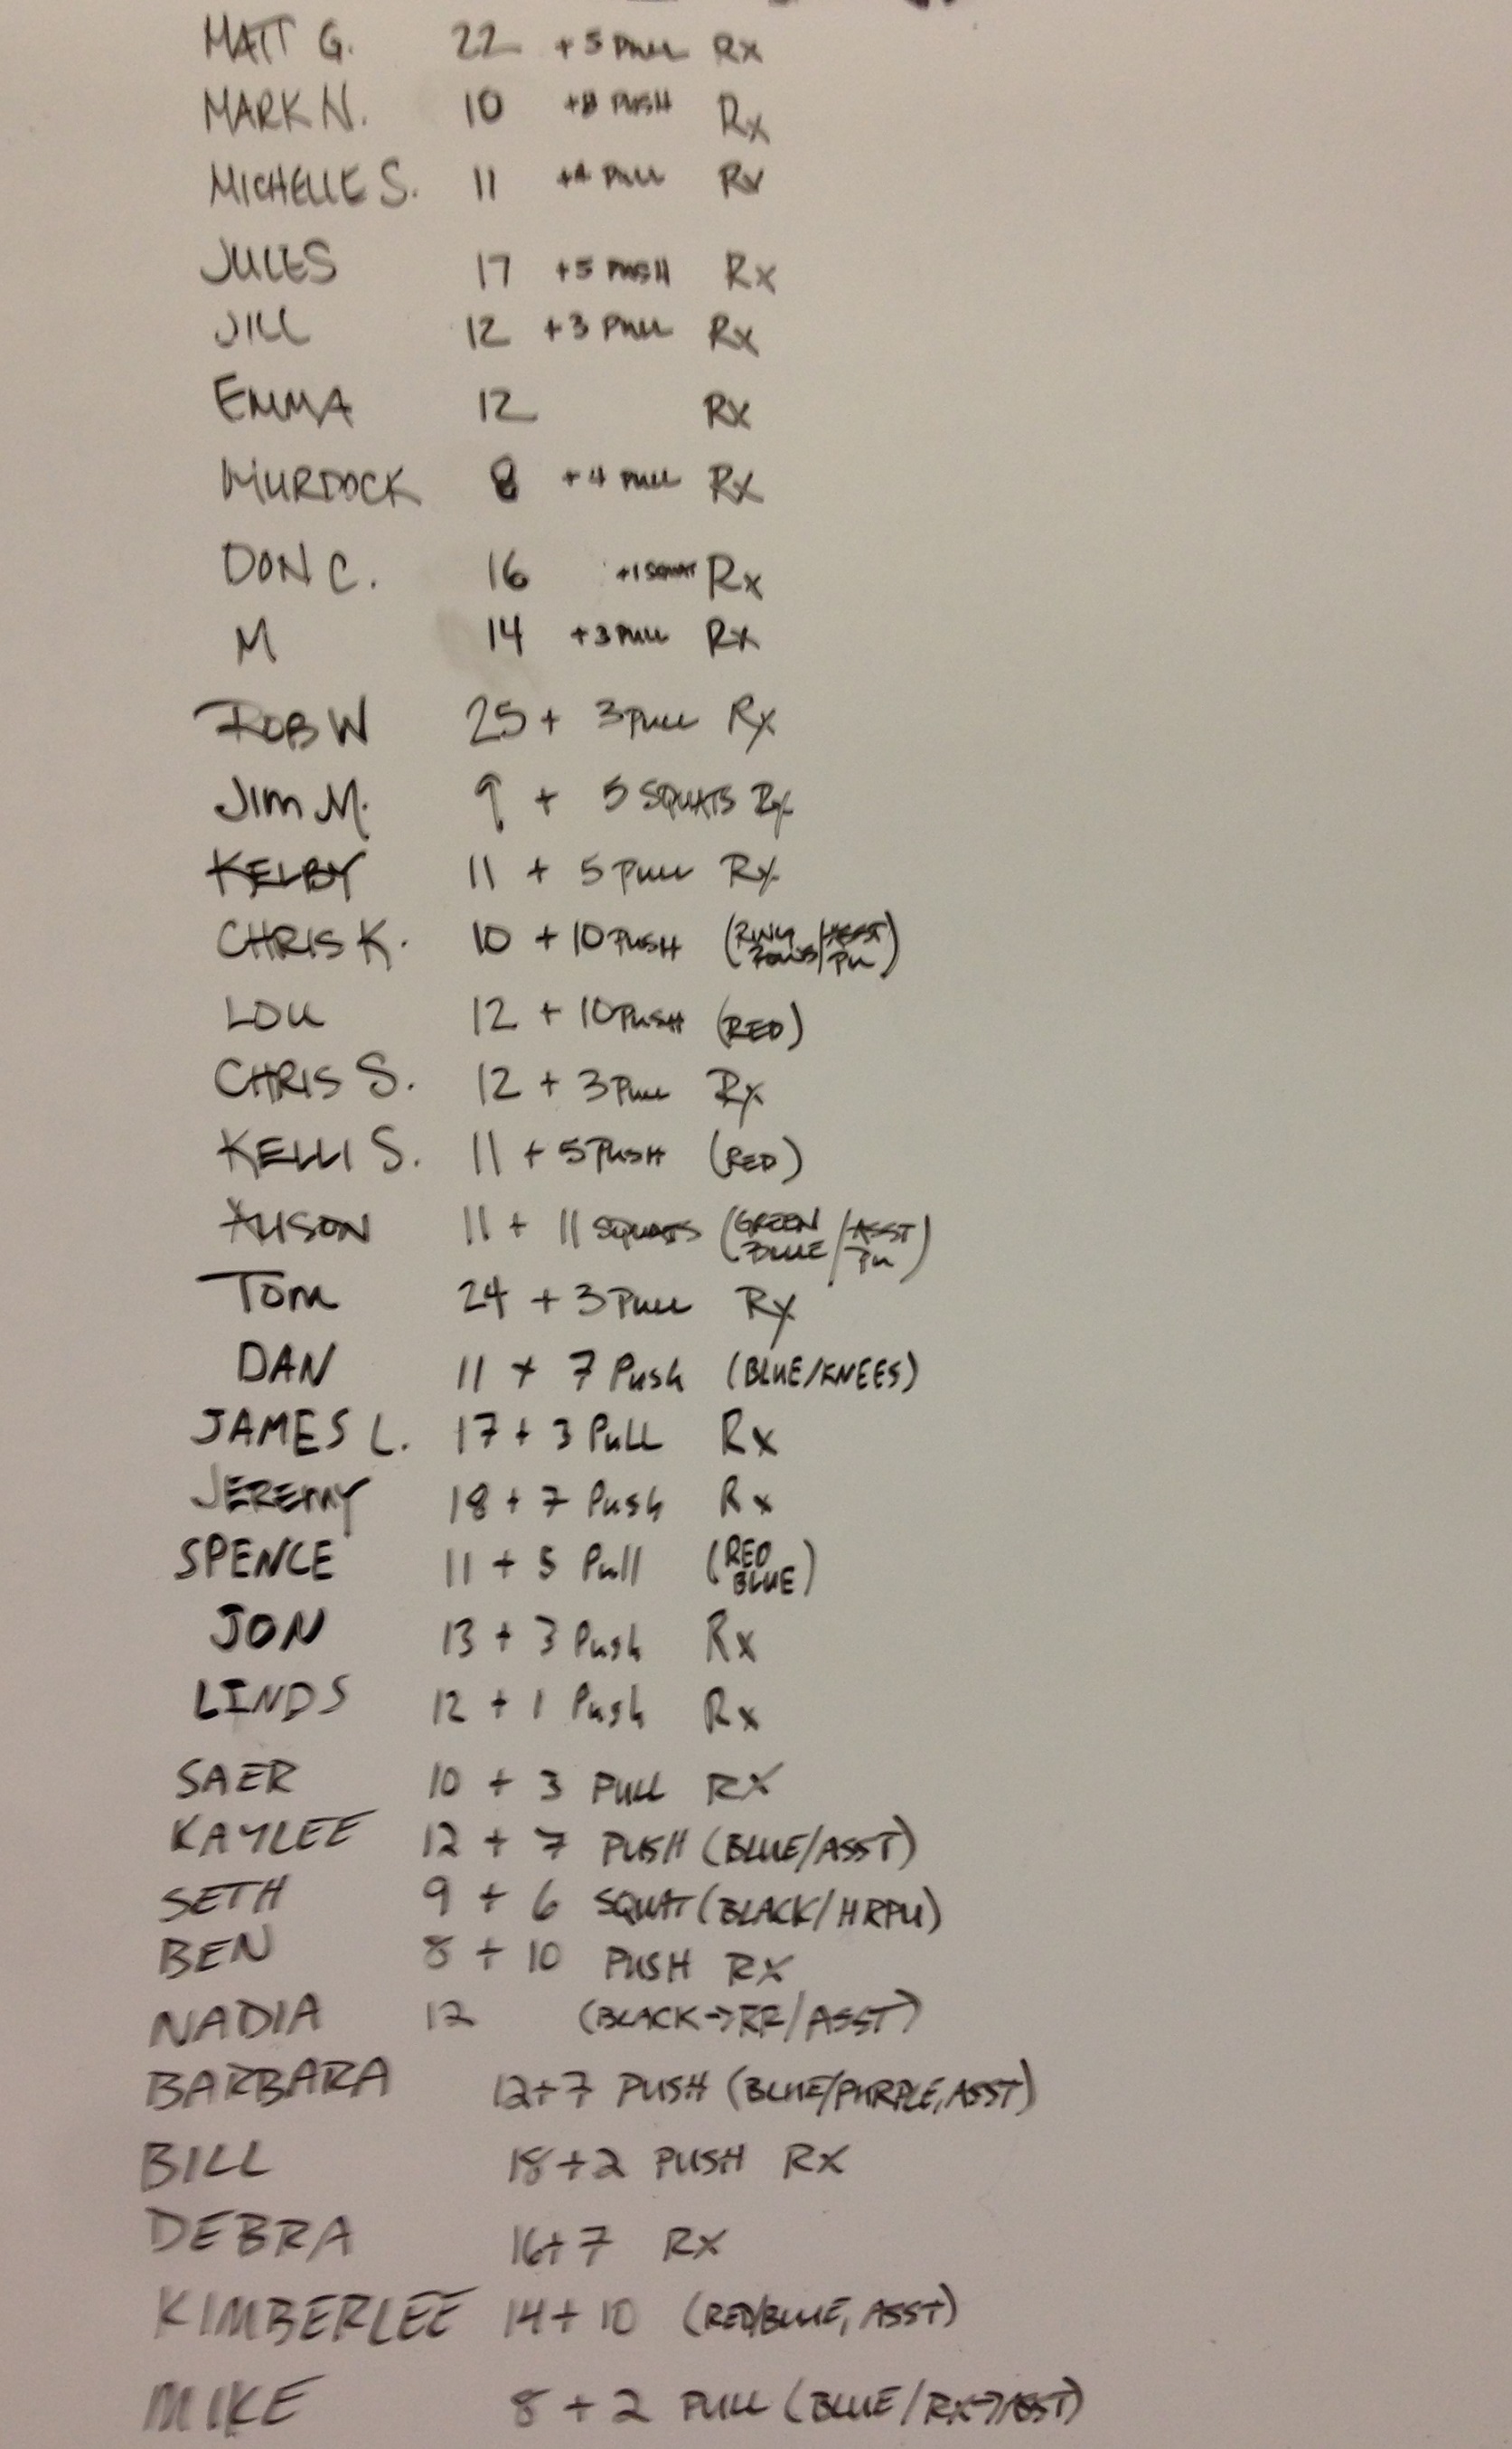 MATT G. 22 +5 PULL Rx
MARK N. 10 +8 PUSH Rx
MICHELLE S. 11 +4 PULL Rx
JULES 17 +5 PUSH Rx
JILL 12 +3 PULL Rx
EMMA 12 Rx
MURDOCK 8 +4 PULL Rx
DON C. 16 +1 SQUAT Rx
M 14 +3 PULL Rx
ROB W 25 + 3 PULL Rx
JIM M. 9 + 5 SQUATS Rx
KELBY 11 + 5 PULL Rx
CHRIS K. 10 + 10 PUSH (RING ROWS/ASST PU)
LOU 12 + 10 PUSH (RED)
CHRIS S. 12 + 3 PULL Rx
KELLI S. 11 + 5 PUSH (RED)
ALISON 11 + 11 SQUATS (GREEN BLUE/ASST PU)
TOM 24 + 3 PULL Rx
DAN 11 + 7 Push (BLUE/KNEES)
JAMES L. 17 + 3 PULL Rx
JEREMY 18 + 7 Push Rx
SPENCE 11 + 5 Pull (RED BLUE)
JON 13 + 3 Push Rx
LINDS 12 + 1 Push Rx
SAER 10 + 3 PULL RX
KAYLEE 12 + 7 PUSH (BLUE/ASST)
SETH 9 + 6 SQUAT (BLACK/HRPU)
BEN 8 + 10 PUSH RX
NADIA 12 (BLACK→RR/ASST)
BARBARA 12+7 PUSH (BLUE/PURPLE, ASST)
BILL 18+2 PUSH RX
DEBRA 16+7 RX
KIMBERLEE 14+10 (RED/BLUE, ASST)
MIKE 8+2 PULL (BLUE/RX→ASST)